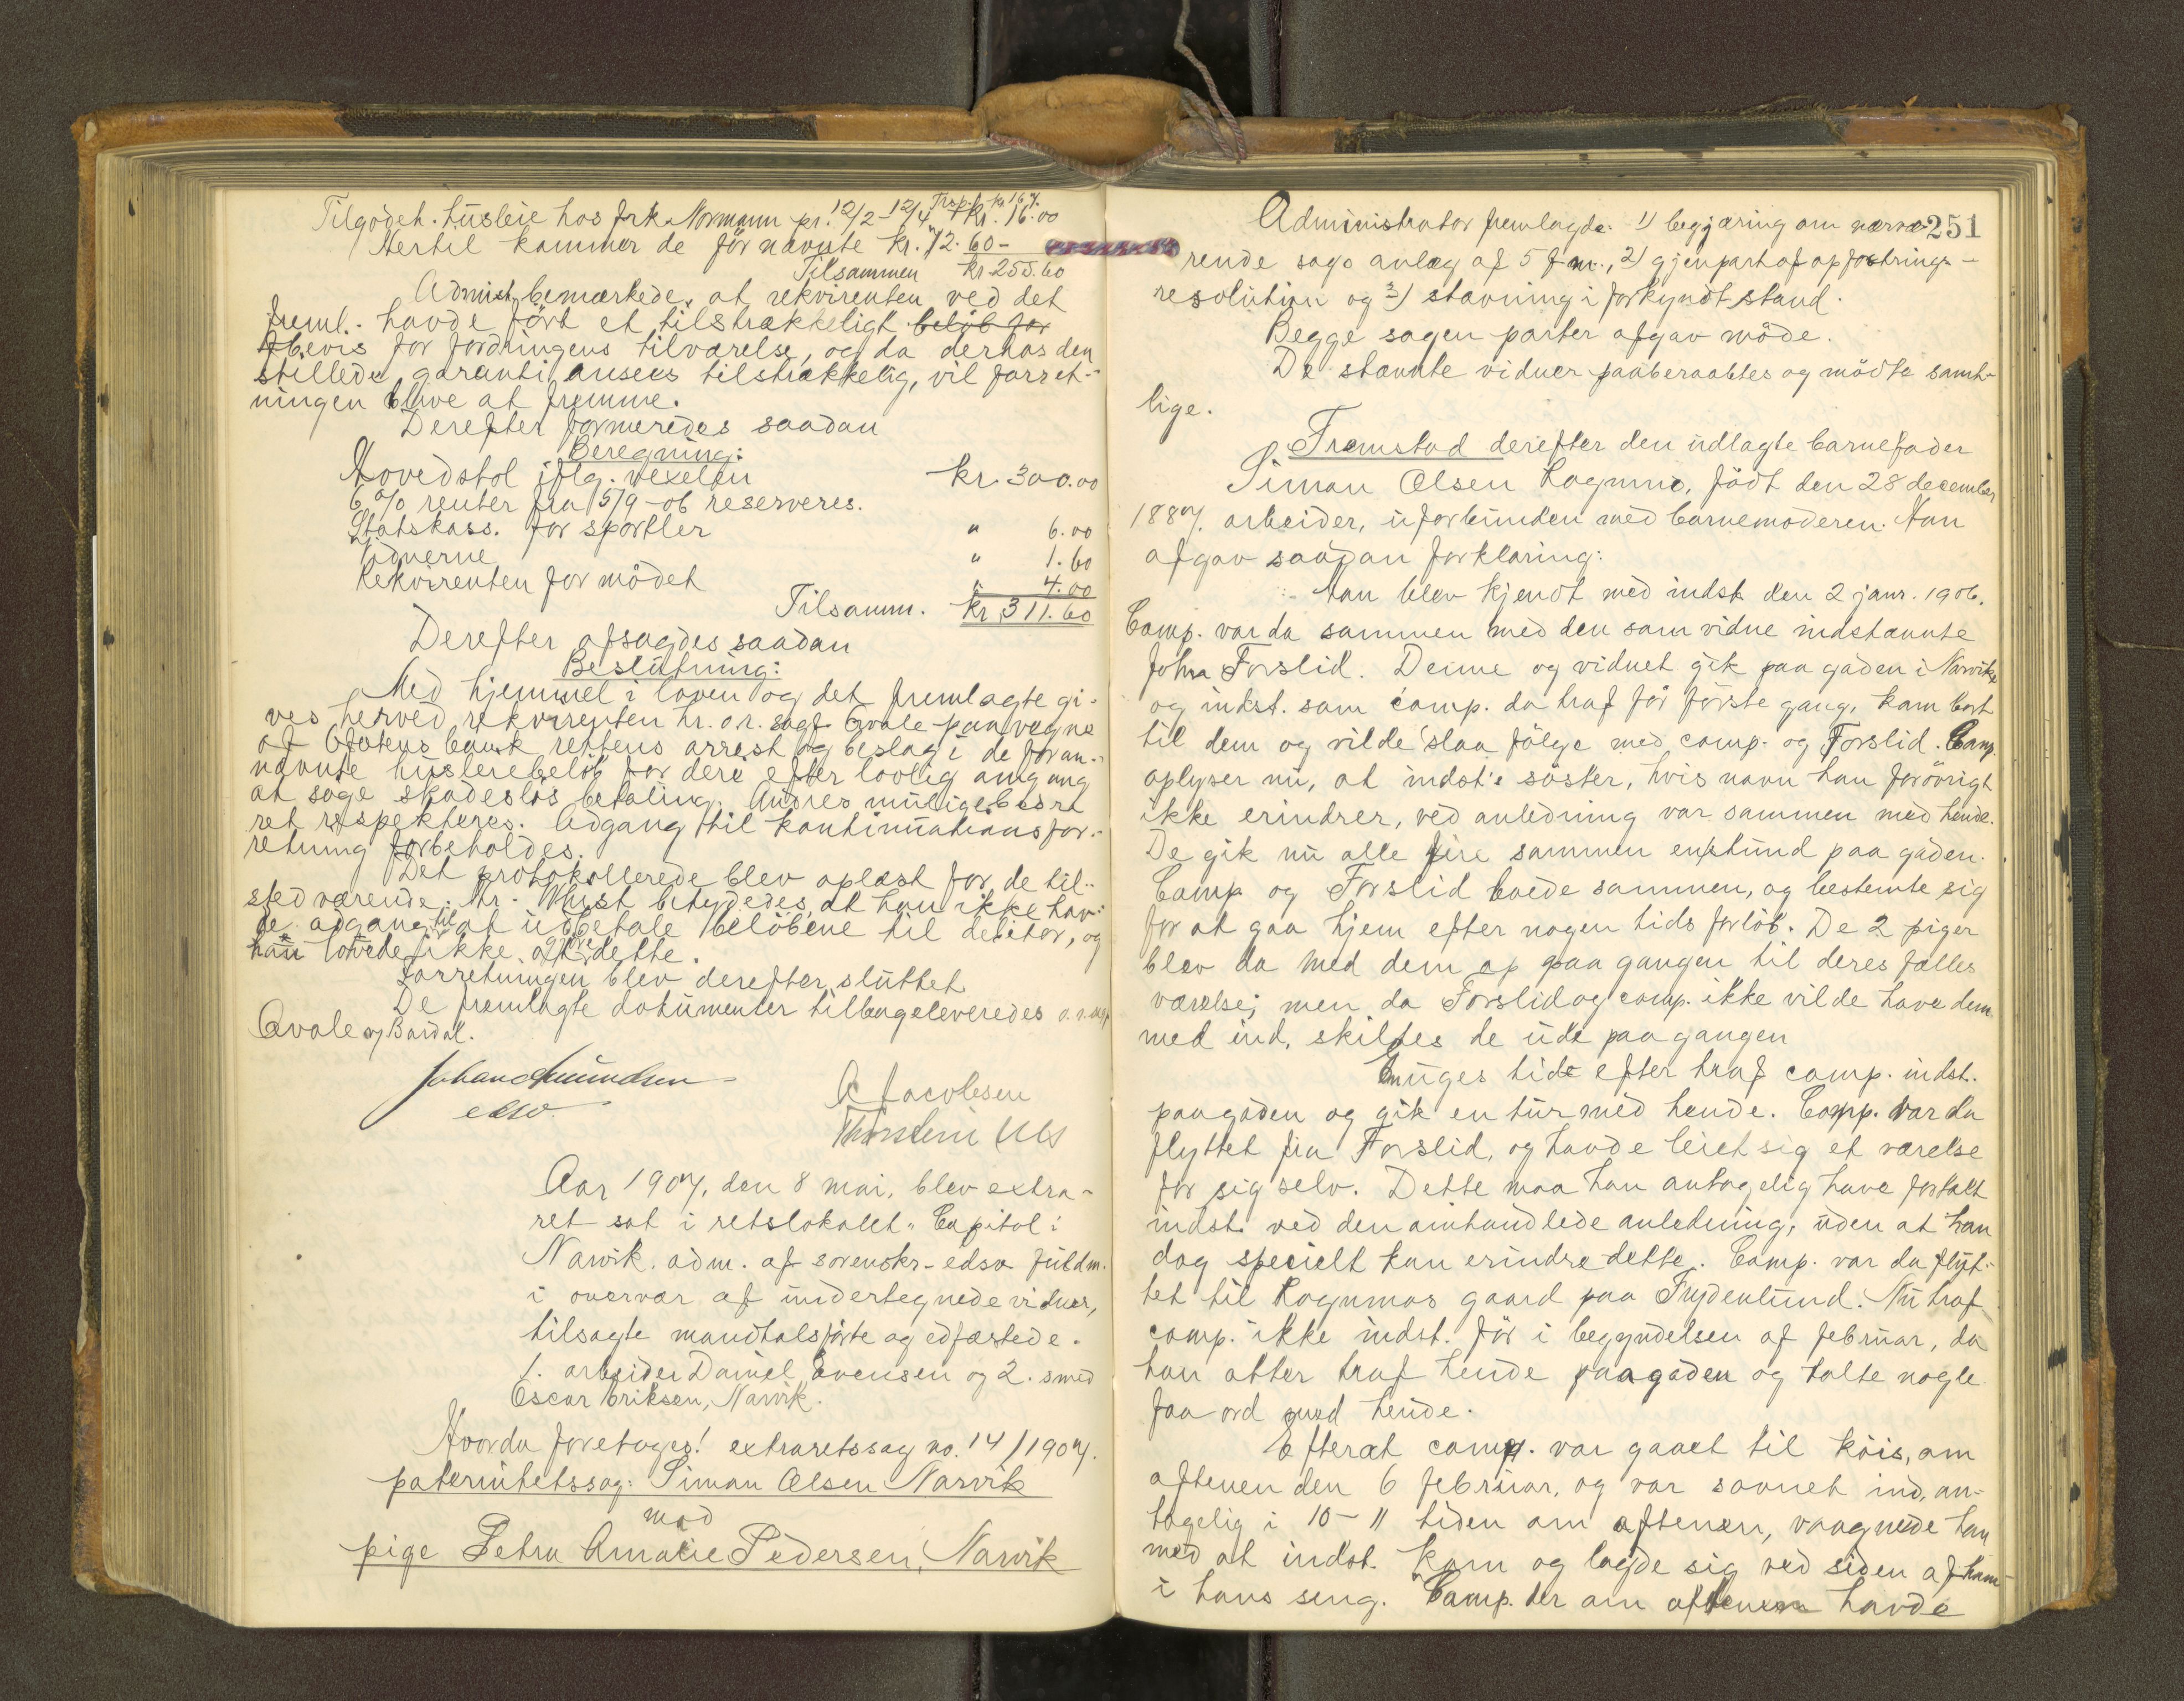 Trsp. kr. 167.
Tilgodeh. husleie hos frk. Normann pr. 12/2-12/4 kr. 16.00
Hertil kommer de før nævnte kr. 72.60-
Tilsammen kr 255.60
Admist. bemærkede, at rekvirenten ved det
freml. havde ført et tilstrækkeligt beløb for
bevis for fordringens tilværelse, og da derhos den
stillede garanti ansees tilstrækkelig, vil forret-
ningen blive at fremme.
Derefter formeredes saadan
Beregning:
Hovedstol iflg. vexelen kr. 300.00
6 % renter fra 15/9-06 reserveres.
Statskass. for sportler " 6.00
Vidnerne " 1.60
Rekvirenten for mødet " 4.00
Tilsamm. kr 311.60
Derefter afsagdes saadan
Beslutning:
Med hjemmel i loven og det fremlagte gi-
ves herved rekvirenten hr. o.r. sagf. Qvale paa vegne
af Ofotens bank rettens arrest og beslag i de foran-
nævnte husleiebeløb for deri efter lovlig omgang
at søge skadesløs betaling. Andres mulige bedre
ret respekteres. Adgang til kontinuationsfor-
retning forbeholdes.
Det protokollerede blev oplæst for de til-
stedværende. Hr. Wust betydedes at han ikke hav-
de adgang til at udbetale beløbene til debitor, og
han lovede ikke at gjøre dette.
Forretningen blev derefter sluttet
De fremlagte dokumenter tilbageleveredes o.r.sagf.
Qvale og Bardal.
Johan Amundsen
edsv.
A Jacobsen
Thorstein Uls
Aar 1907, den 8 mai, blev extra-
ret sat i retslokalet "Capitol i
Narvik. adm. af sorenskr. edsv fuldm.
i overvær af undertegnede vidner,
tilsagte mandtalsførte og edfæstede.
1. arbeider Daniel Evensen og 2. smed
Oscar Eriksen, Narvik.
Hvorda foretages! extraretssag no. 14/1907.
paternitetssag: Simon Olsen Narvik
mod
pige Petra Amalie Pedersen, Narvik
Administrator fremlagde: 1) begjæring om nærvæ- 251
rende sags anlæg af 5 f.m., 2) gjenpart af opfostrings-
resolution og 3) stævning i forkyndt stand.
Begge sagen parter afgav møde.
De stævnte vidner paaberaabtes og mødte samt-
lige.
Fremstod derefter den udlagte barnefader
Simon Olsen Lagumo, født den 28 december
1887. arbeider, uforbunden med barnemoderen. Han
afgav saadan forklaring:
Han blev kjendt med indst. den 2 janr. 1906.
Comp. var da sammen med den som vidne indstævnte
Johna Forslid. Denne og vidnet gik paa gaden i Narvik,
og indst. som comp. da traf for første gang, kom bort
til dem og vilde slaa følge med comp. og Forslid. Comp.
oplyser nu, at indst's søster, hvis navn han forøvrigt
ikke erindrer, ved anledning var sammen med hende.
De gik nu alle fire sammen en stund paa gaden.
Comp og Forslid boede sammen, og bestemte sig
for at gaa hjem efter nogen tids forløb. De 2 piger
blev da med dem op paa gangen til deres fælles
værelse; men da Forslid og comp. ikke vilde have dem
med ind, skiltes de ude paa gangen
En uges tids efter traf comp. indst.
paa gaden og gik en tur med hende. Comp. var da
flyttet fra Forslid, og havde leiet sig et værelse
for sig selv. Dette maa han antagelig have fortalt
indst. ved den omhandlede anledning, uden at han
dog specielt kan erindre dette. Comp. var da flyt-
tet til Lagumos gaard paa Frydenlund. Nu traf
comp. ikke indst. før i begyndelsen af februar, da
han atter traf hende paa gaden og talte nogle
faa ord med hende.
Efterat comp. var gaaet til køis, om
aftenen den 6 februar, og var sovnet ind, an-
tagelig i 10-11 tiden om aftenen, vaagnede han
med at indst. kom og lagde sig ved siden af ham
i hans seng. Comp. der om aftenen havde